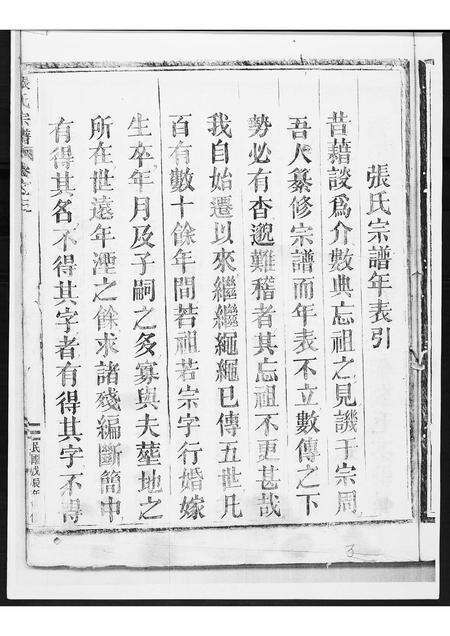 張氏宗譜年表引
昔藉談爲介數典忘祖之見譏于宗周
吾人纂修宗譜而年表不立數傳之下
勢必有杳邈難稽者其忘祖不更甚哉
我自始遷以來繼繼繩繩已傳五世凡
百有數十餘年間若祖若宗字行婚嫁
生卒年月及子嗣之多寡與夫塟地之
所在世遠年湮之餘求諸殘編斷簡中
有得其名不得其字者有得其字不得
張氏宗譜 卷之三
民國戊辰年